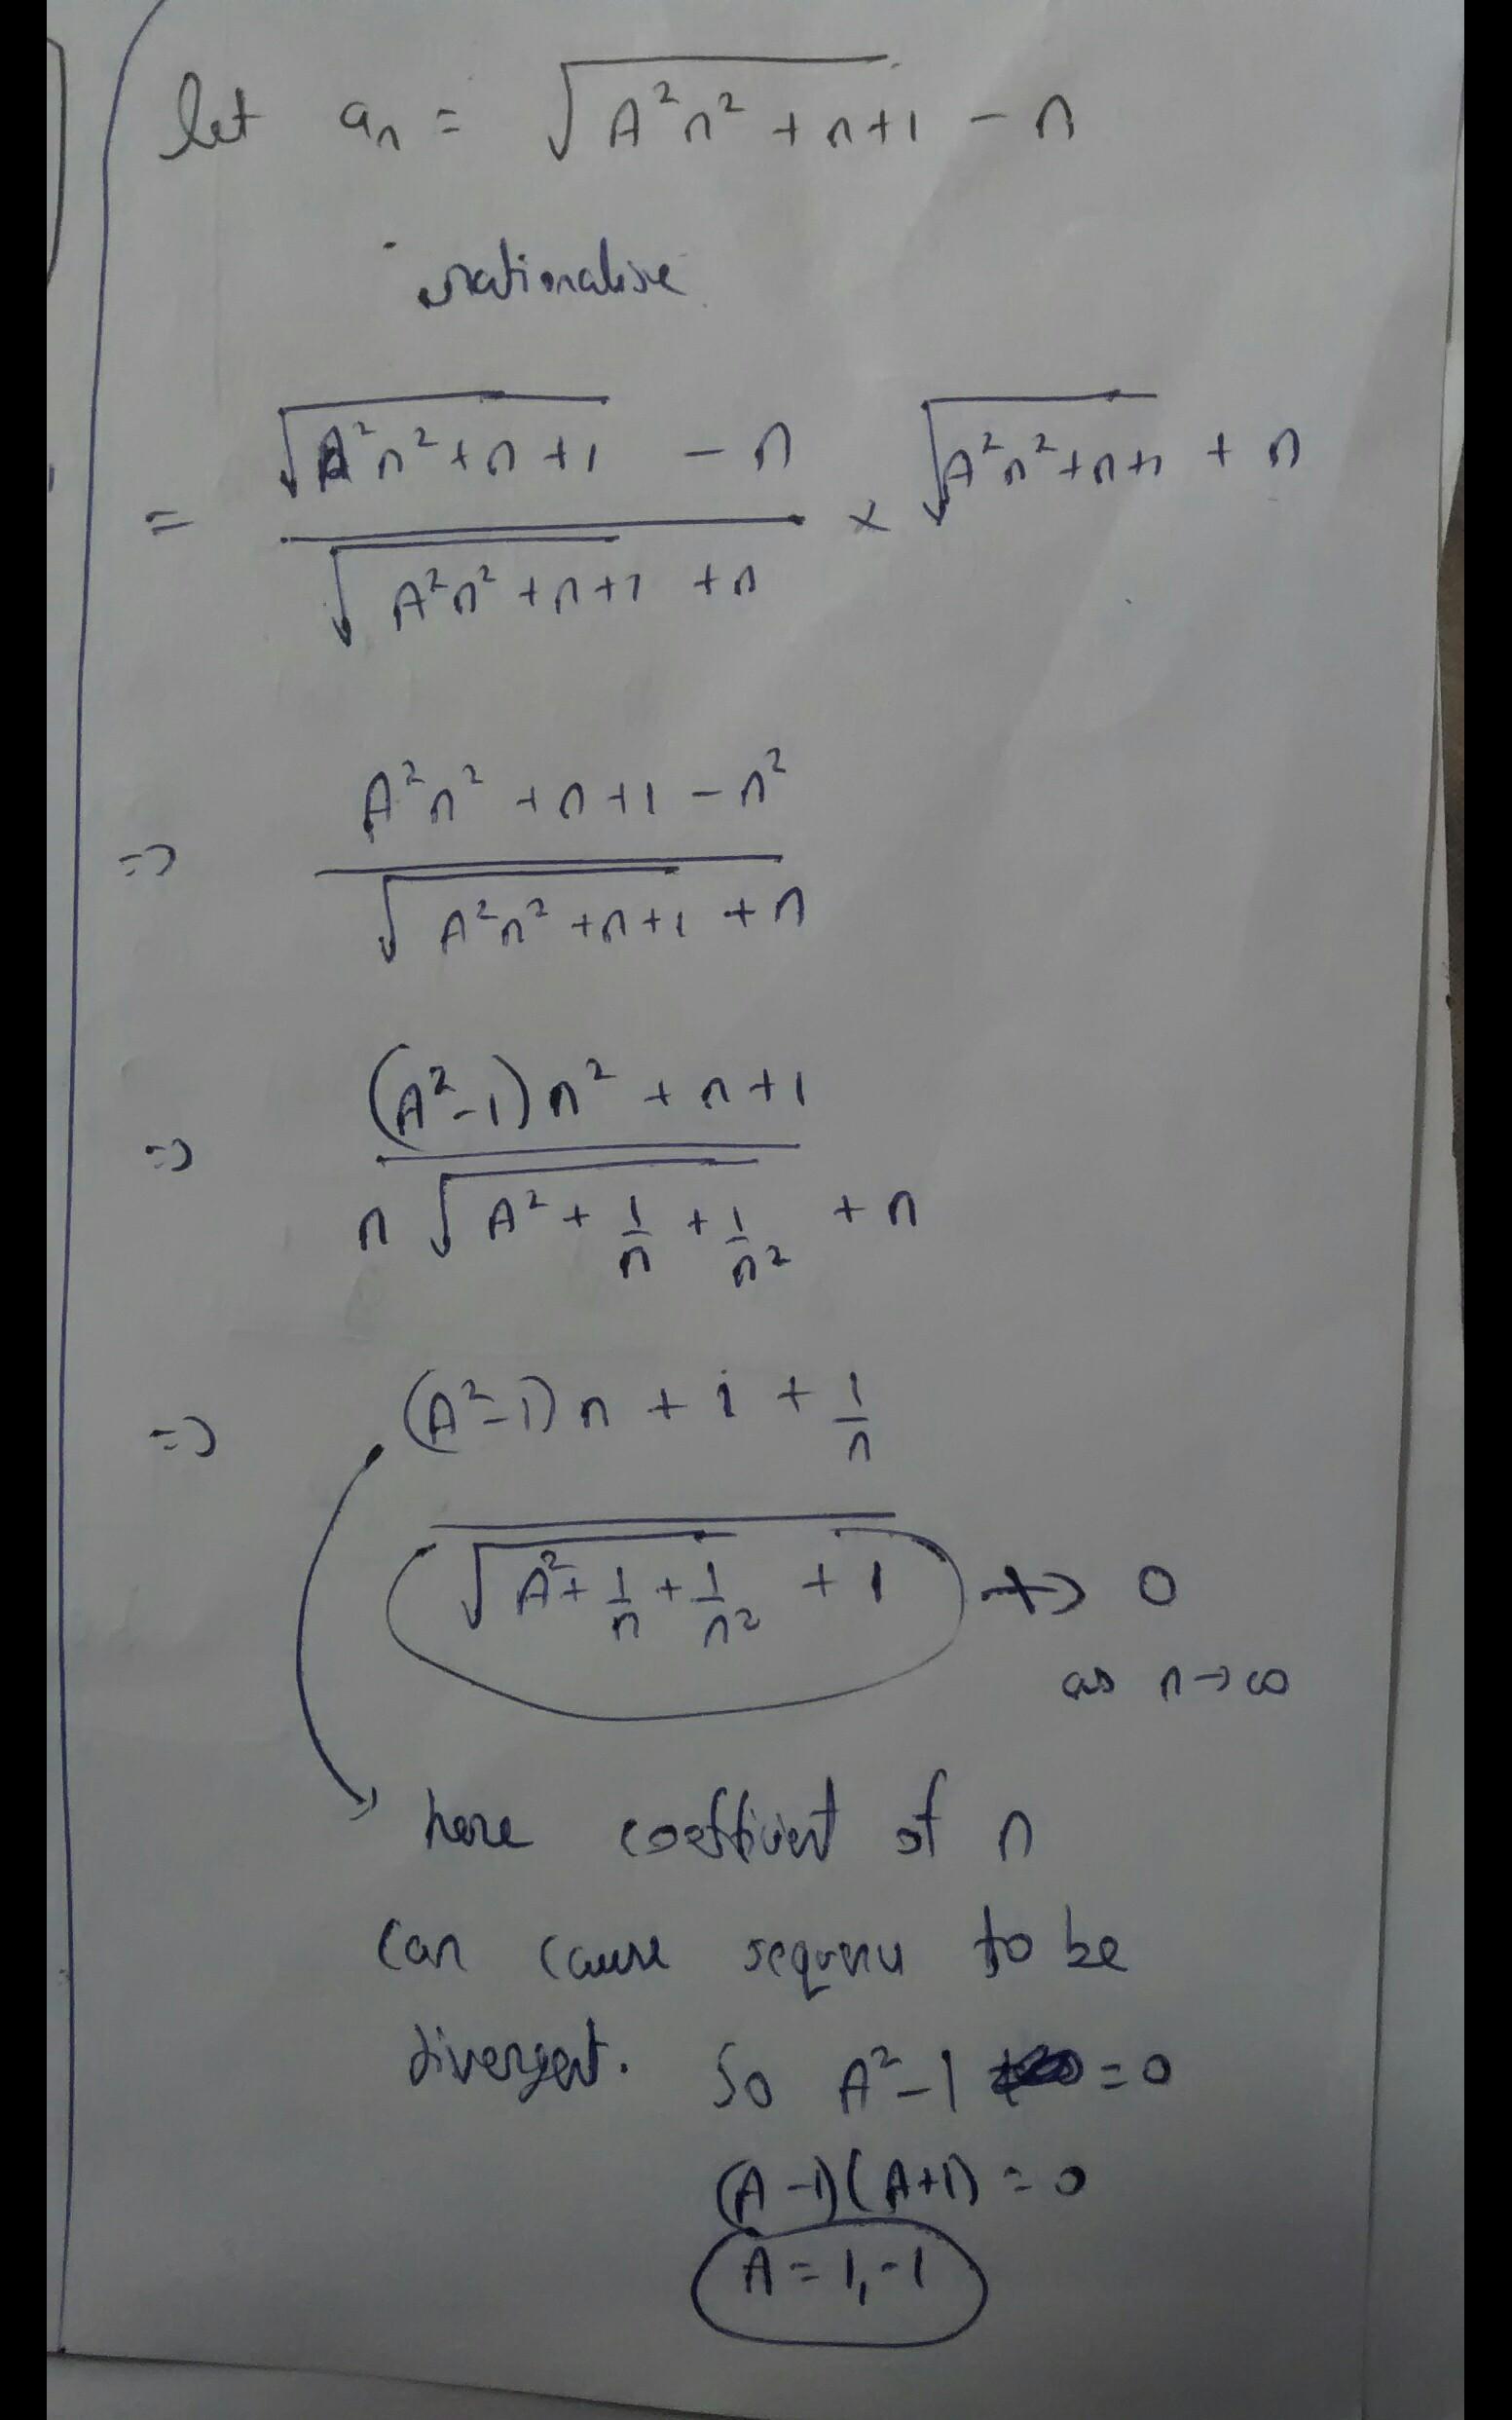 let aₙ = √(A²n² + n+1) - n
rationalise
= (√(A²n² + n + 1) - n) / (√(A²n² + n + 1) + n) × √(A²n² + n + 1) + n
=> (A²n² + n + 1 - n²) / (√(A²n² + n + 1) + n)
=> ((A²-1)n² + n + 1) / (n√(A² + 1/n + 1/n²) + n)
=> ((A²-1)n + 1 + 1/n) / (√(A² + 1/n + 1/n²) + 1) ↛ 0
as n → ∞
here coefficient of n
can cause sequence to be
divergent. So A² - 1 = 0
(A-1)(A+1) = 0
A = 1, -1